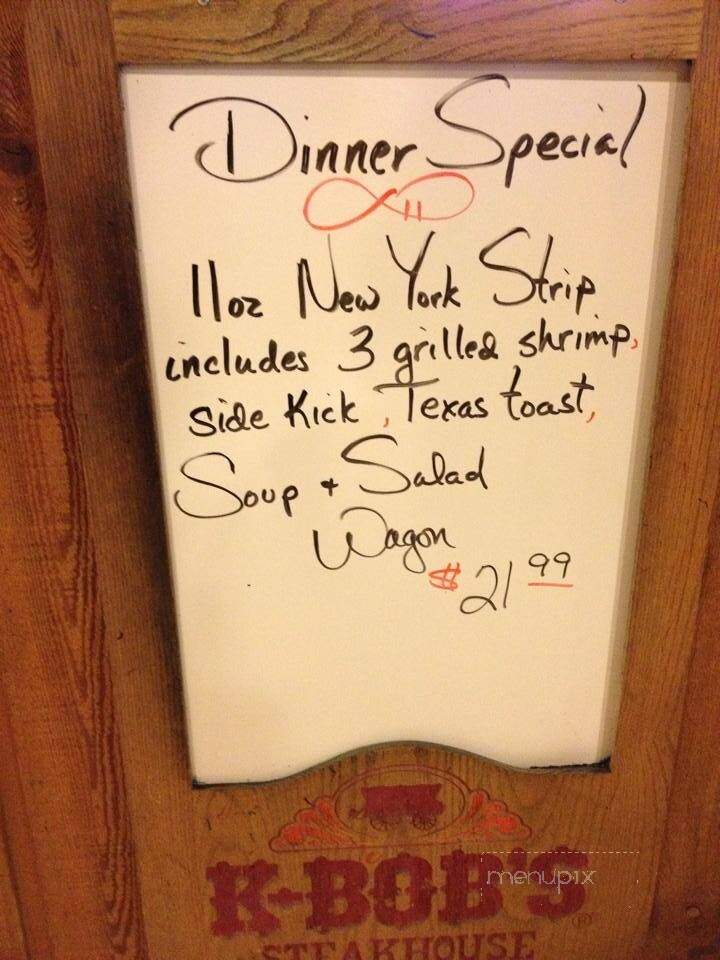 Dinner Special
11oz New York Strip
includes 3 grilled shrimp,
Side Kick, Texas toast,
Soup + Salad
Wagon
$21 99
K-BOB'S
menupix
STEAKHOUSE